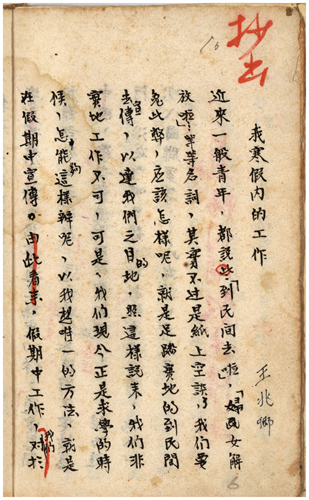 抄出
我寒假内的工作
王兆卿
近來一般青年，都說些「到民間去啦」，「婦女解
放啦」等等名詞，其實不过是紙上空談；我們要
免此弊，应該怎樣呢，就是足踏實地的到民間
去宣傳，以達我們之目的地，照這樣說來，我們非
實地工作不可，可是，我們現今正是求學的時
候，怎能夠這樣辦呢，以我想唯一的方法，就是
在假期中宣傳。由此看來，假期中工作，对於
6